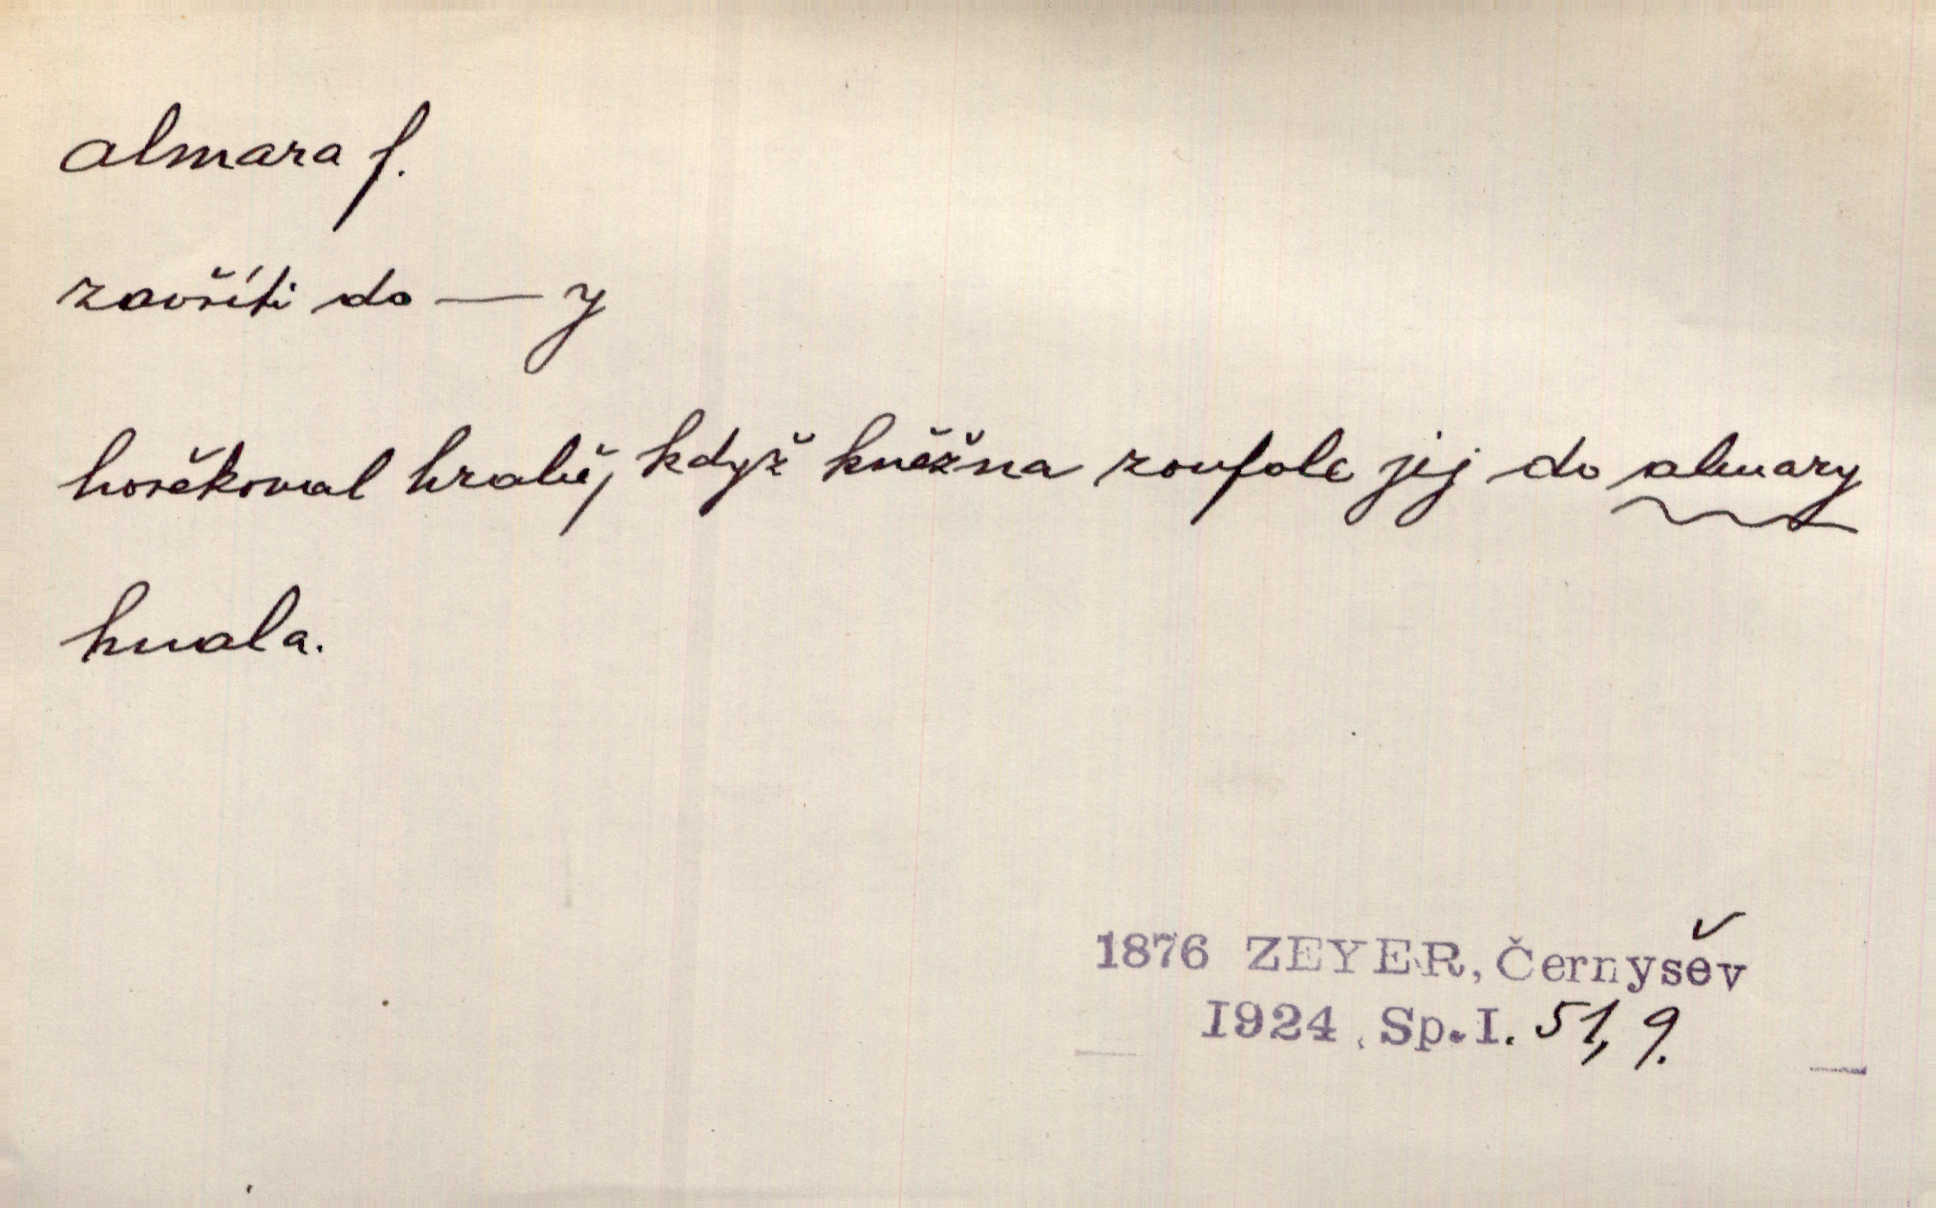 almara f.
zavříti do — y
hořekoval hrabě, když kněžna zoufale jej do almary
hnala.
1876 ZEYER, Černyšev
1924 Sp. I. 51, 9.